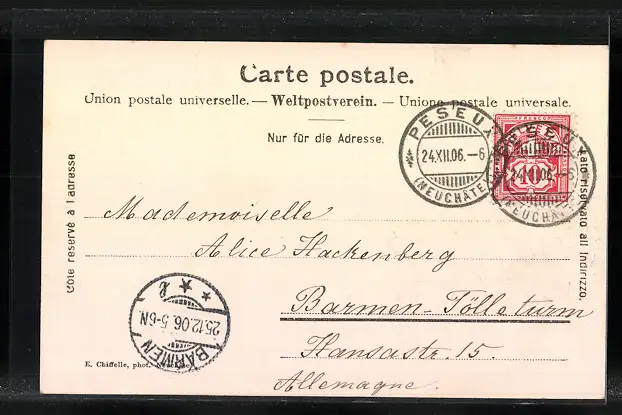 Carte postale.
Union postale universelle. — Weltpostverein. — Unione postale universale.
Nur für die Adresse.
Côté réservé à l'adresse
Lato riservato all'indirizzo.
PESEUX
24.XII.06.–6
(NEUCHÂTEL)
FRANCO
10
PESEUX
24.XII.06.–6
(NEUCHÂTEL)
Mademoiselle
Alice Hackenberg
Barmen-Tölleturm
Hansastr. 15.
Allemagne.
BARMEN
25.12.06. 5-6N
E. Chiffelle, phot.